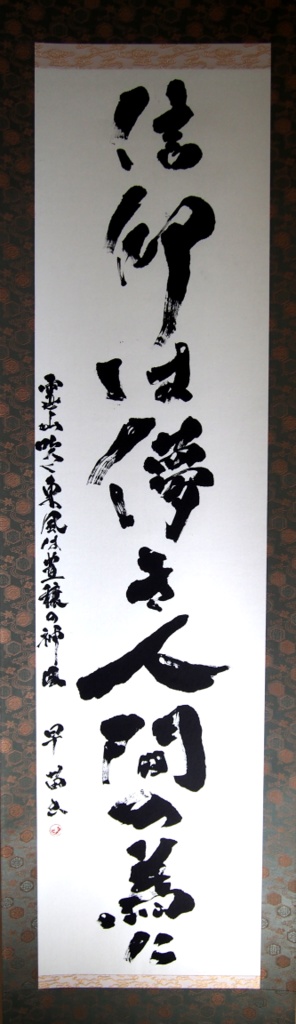 信仰は儚き人間の為に
霊山吹く東風は豊穣の神風 早苗